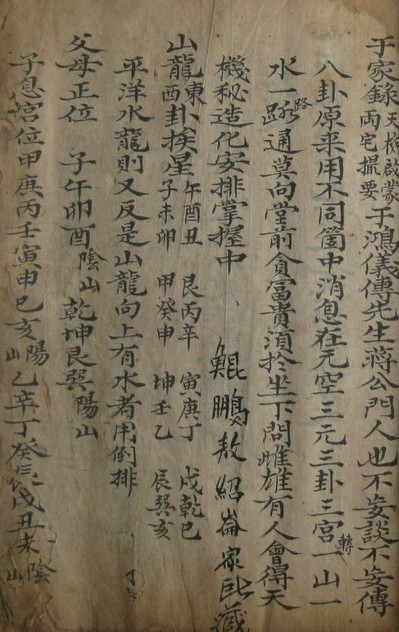 于家錄天機啟蒙兩宅撮要于鴻儀傳先生蔣公門人也不妄談不妄傳
八卦原來用不同箇中消息在元空三元三卦三宮轉一山一
水一路通莫向堂前貪富貴須於坐下問雌雄有人會得天
機秘造化安排掌握中　鯤鵬敖紹崙家藏
山龍東西卦挨星　午酉丑　子未卯　艮丙辛　甲癸申　寅庚丁　坤壬乙　戌乾巳　辰巽亥
平洋水龍則又反是山龍向上有水者用倒排
父母正位　子午卯酉陰山乾坤艮巽陽山
子息宮位甲庚丙壬寅申巳亥陽山乙辛丁癸辰戌丑未陰山